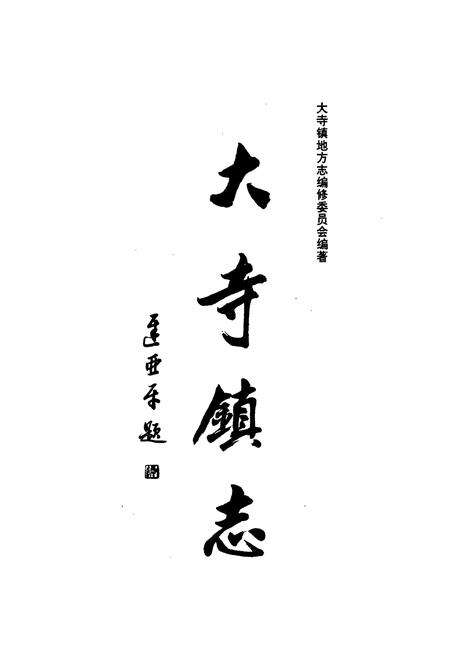 大寺镇地方志编修委员会编著
大寺鎮志
亚平题